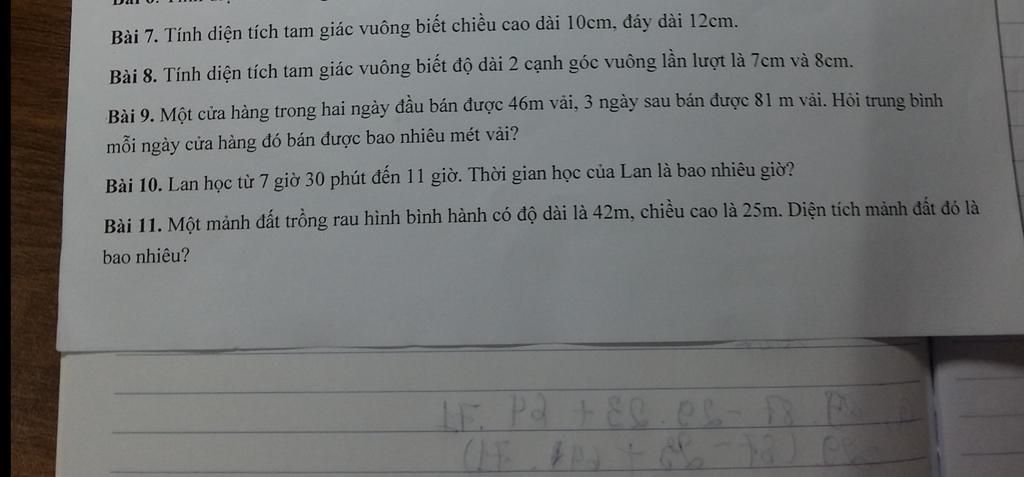 Bài 7. Tính diện tích tam giác vuông biết chiều cao dài 10cm, đáy dài 12cm.
Bài 8. Tính diện tích tam giác vuông biết độ dài 2 cạnh góc vuông lần lượt là 7cm và 8cm.
Bài 9. Một cửa hàng trong hai ngày đầu bán được 46m vải, 3 ngày sau bán được 81 m vải. Hỏi trung bình
mỗi ngày cửa hàng đó bán được bao nhiêu mét vải?
Bài 10. Lan học từ 7 giờ 30 phút đến 11 giờ. Thời gian học của Lan là bao nhiêu giờ?
Bài 11. Một mảnh đất trồng rau hình bình hành có độ dài là 42m, chiều cao là 25m. Diện tích mảnh đất đó là
bao nhiêu?